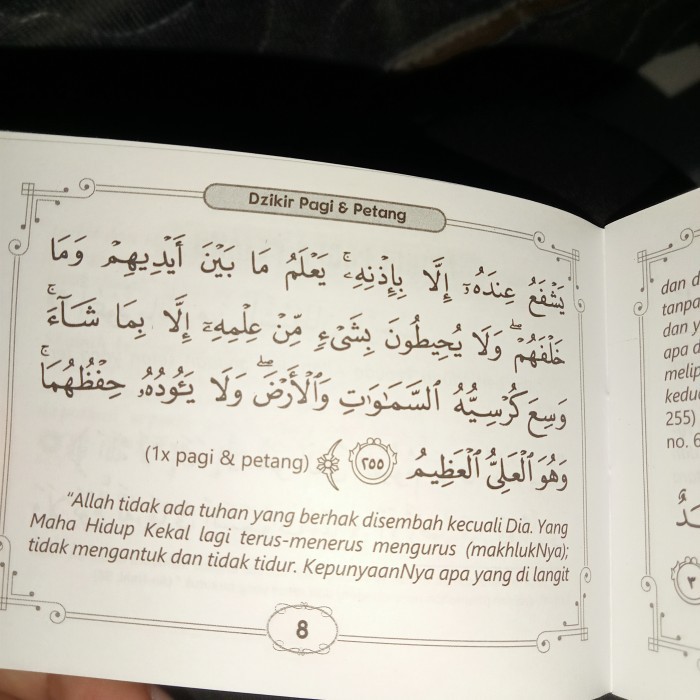 Dzikir Pagi & Petang
يَشْفَعُ عِندَهُۥٓ إِلَّا بِإِذْنِهِۦۚ يَعْلَمُ مَا بَيْنَ أَيْدِيهِمْ وَمَا
خَلْفَهُمْۖ وَلَا يُحِيطُونَ بِشَىْءٍ مِّنْ عِلْمِهِۦٓ إِلَّا بِمَا شَآءَۚ
وَسِعَ كُرْسِيُّهُ ٱلسَّمَٰوَٰتِ وَٱلْأَرْضَۖ وَلَا يَـُٔودُهُۥ حِفْظُهُمَاۚ
وَهُوَ ٱلْعَلِىُّ ٱلْعَظِيمُ ٢٥٥ (1x pagi & petang)
"Allah tidak ada tuhan yang berhak disembah kecuali Dia. Yang
Maha Hidup Kekal lagi terus-menerus mengurus (makhlukNya);
tidak mengantuk dan tidak tidur. KepunyaanNya apa yang di langit
8
dan d
tanpa
dan y
apa d
melip
kedu
255)
no. 6
٣